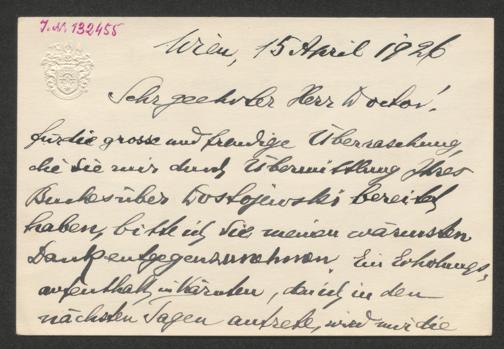 J. N. 132455
Wien, 15 April 1926
Sehr geehrter Herr Doctor!
für die grosse und freudige Überraschung,
die Sie mir durch Übermittlung Ihres
Buches über Dostojewski bereitet
haben, bitte ich Sie meinen wärmsten
Dank entgegenzunehmen. Ein Erholungs-
aufenthalt in Kärnten, den ich in den
nächsten Tagen antrete, wird mir die